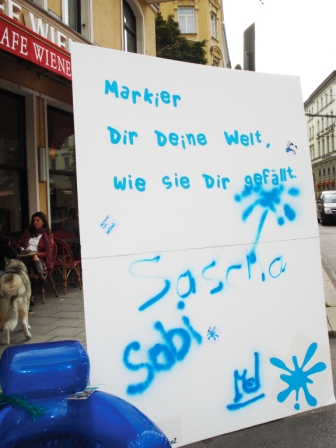 FE WIE
CAFE WIENE
Markier
Dir Deine Welt,
wie sie Dir gefällt.
Sascha
Sobi
Mel